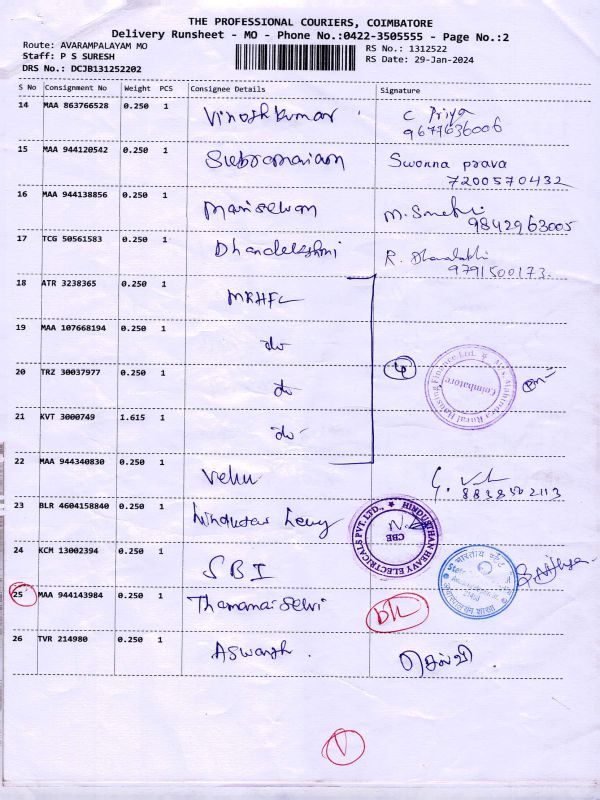 THE PROFESSIONAL COURIERS, COIMBATORE
Delivery Runsheet - MO - Phone No.:0422-3505555 - Page No.:2
Route: AVARAMPALAYAM MO RS No.: 1312522
Staff: P S SURESH RS Date: 29-Jan-2024
DRS No.: DCJB131252202
S No Consignment No Weight PCS Consignee Details Signature
14 MAA 863766528 0.250 1 Vinothkumar C Priya
9677636006
15 MAA 944120542 0.250 1 Subramaniam Swarna prava
7200570432
16 MAA 944138856 0.250 1 Maniselvan M.
9842963005
17 TCG 50561583 0.250 1 Dhandelakshmi R.
9791500173.
18 ATR 3238365 0.250 1 MRHFL
19 MAA 107668194 0.250 1 do
20 TRZ 30037977 0.250 1 do
4
Mahindra Rural Housing Finance Ltd. Coimbatore
21 KVT 3000749 1.615 1 do
22 MAA 944340830 0.250 1 Velu
8838502113
23 BLR 4604158840 0.250 1 hindustan heavy
HINDUSTHAN HEAVY ELECTRICALS PVT. LTD., CBE
24 KCM 13002394 0.250 1 SBI
भारतीय स्टेट
25 MAA 944143984 0.250 1 Thamarai selvi D/L
26 TVR 214980 0.250 1 Aswanth. செல்வி